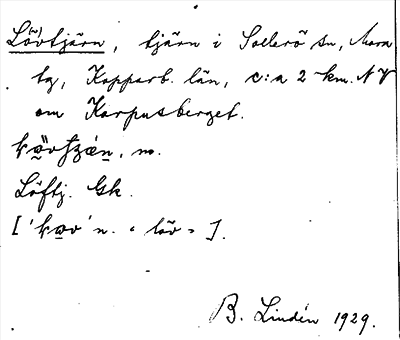 Lövtjärn, tjärn i Sollerö sn, Mora
tg, Kopparb. län, c:a 2 km. NV
om Korpusberget.
m.
Löftj. Gk.
n. "löv" ].
B. Lindén 1929.